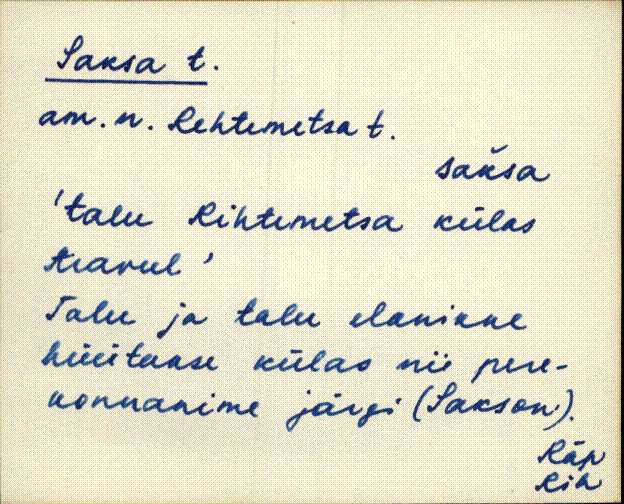 Saksa t.
am. n. Rehtemetsa t.
sak̆sa
'talu Rihtemetsa külas
Aravul'
Talu ja talu elanikke
hüütakse külas nii pere-
konnanime järgi (Sakson).
Räp
Rih